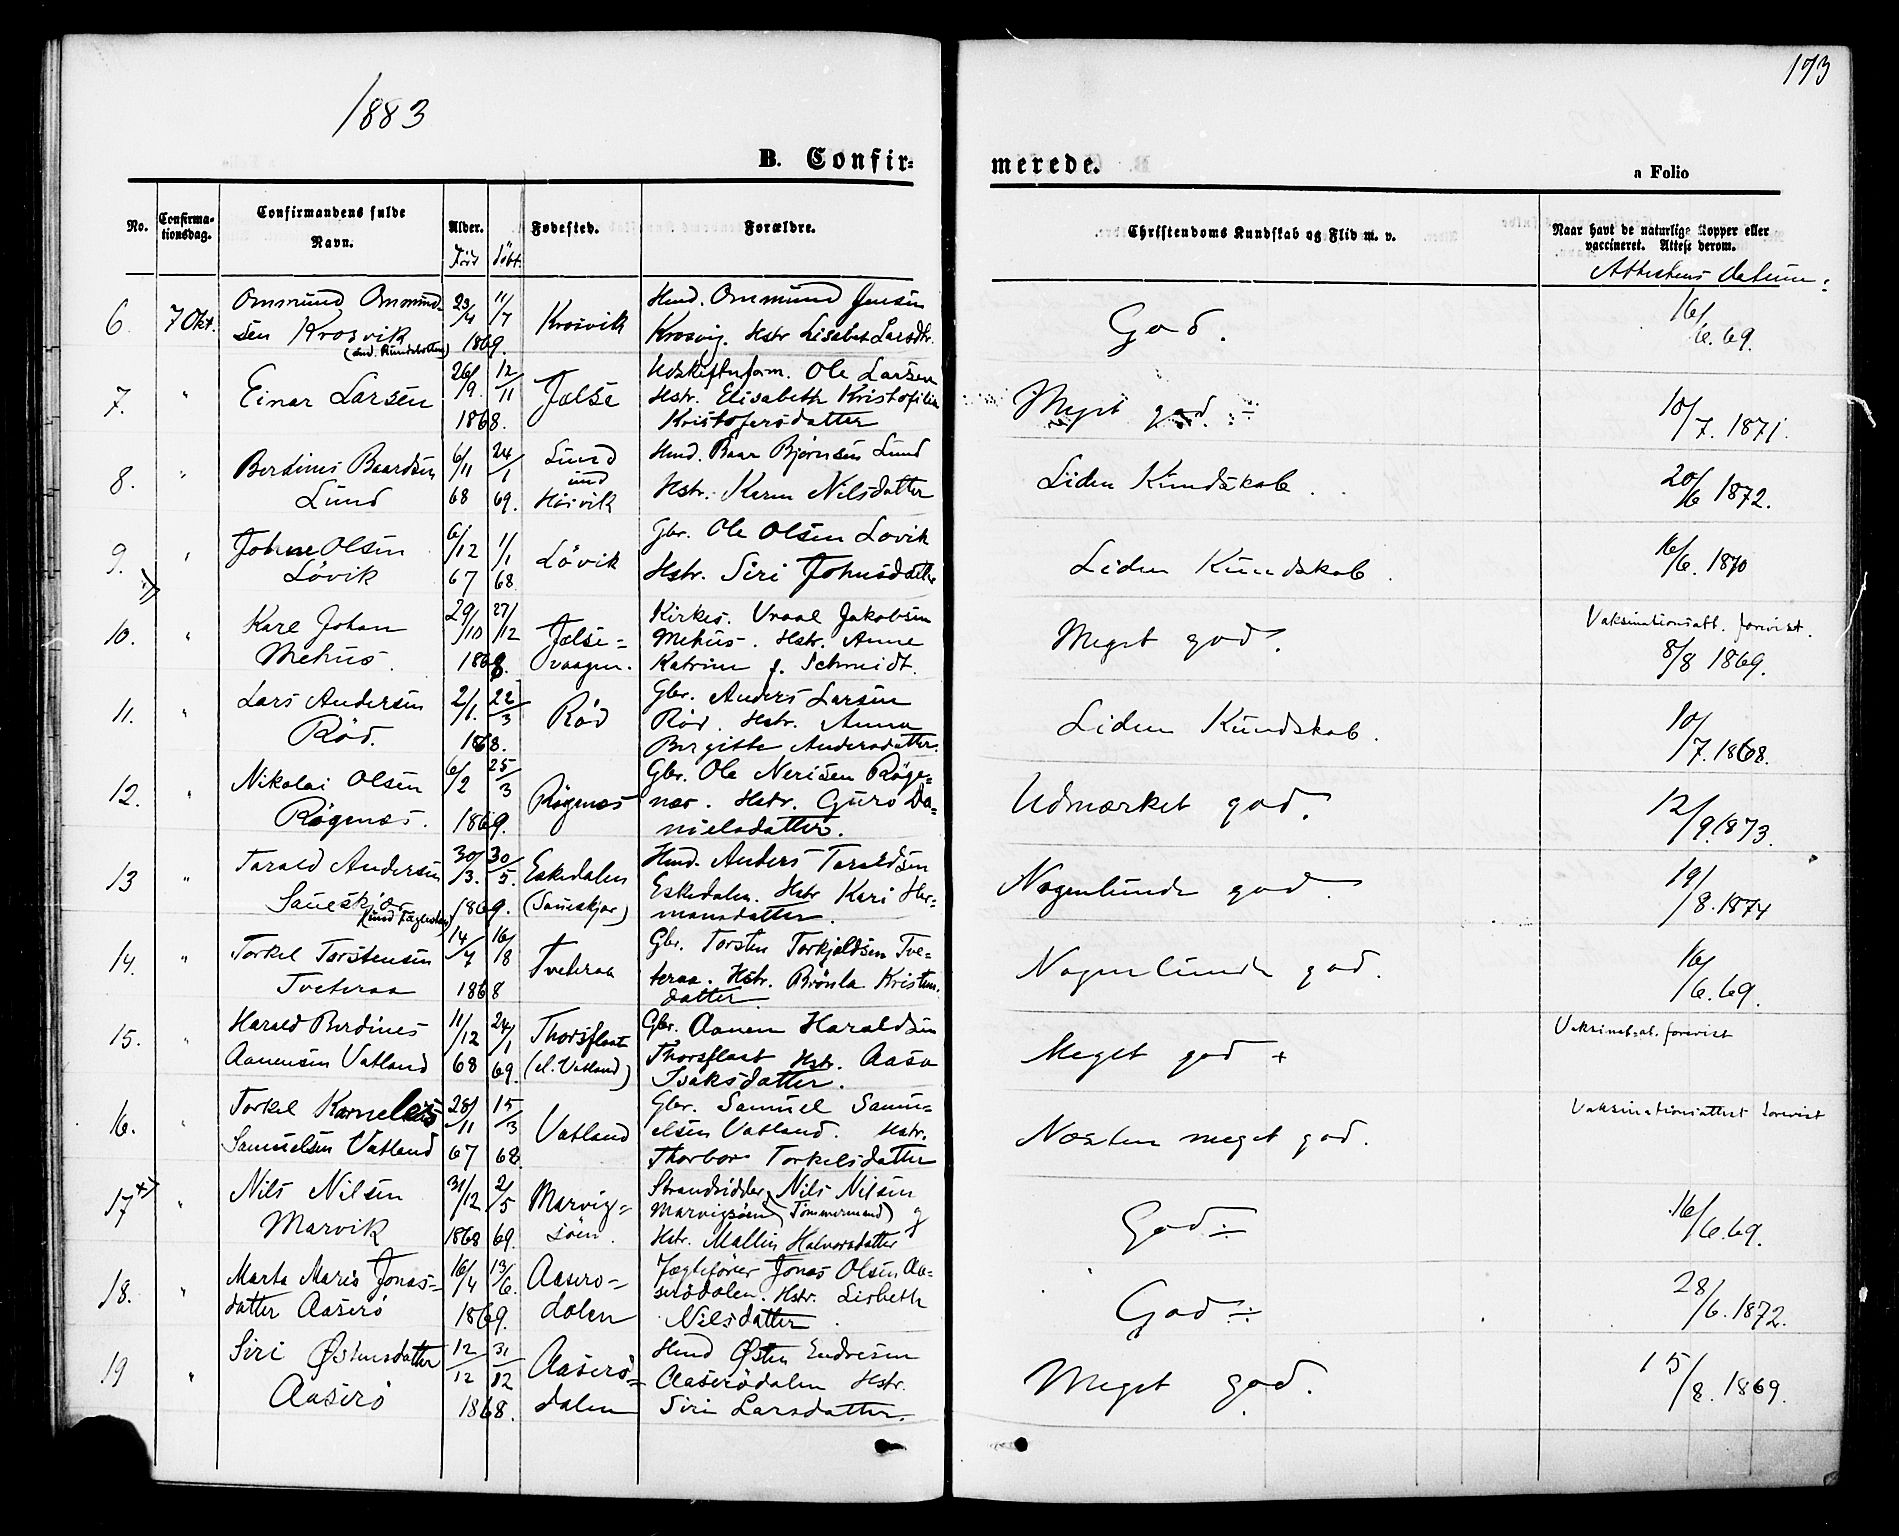 173
1883
B. Confir=
merede.
a Folio
No.
Confirma-
tionsdag.
Confirmandens fulde
Navn.
Alder.
Født
døbt.
Fødested.
Forældre.
Christendoms Kundskab og Flid m. v.
Naar havt de naturlige Kopper eller
vaccineret. Attest derom.
Attestens datum:
6. 7 Okt. Ommund Ommund- 23/4 11/7 Krosvik Hmd. Ommund Jensen God. 16/6.69.
sen Krosvik 1869. Krosvig. Hstr Lisabet Larsdtr.
7. " Einar Larsen 26/9. 12/11 Jelse Udskiftnform. Ole Larsen Meget god. ÷ 10/7. 1871.
1868. Hstr. Elisabeth Kristofilia
Kristofersdatter
8. " Berdines Baardsen 6/11 24/1 Lund Hmd. Baar Bjørnsen Lund Liden Kundskab. 20/6 1872.
Lund 68 69. und Høsvik Hstr. Karen Nilsdatter
9. " Johne Olsen 6/12 1/1 Løvik Gbr. Ole Olsen Lovik Liden Kundskab. 16/6. 1870
Løvik 67 68. Hstr. Siri Johnsdatter
10. " Karl Johan 29/10 27/12 Jelse= Kirkes. Vraal Jakobsen Meget god. Vaksinationsatt. forevist.
Mehus. 1868. vaagen. Mehus. Hstr. Anne 8/8 1869.
Katrine f. Schmidt.
11. " Lars Andersen 2/1. 22/3 Rød Gbr. Anders Larsen Liden Kundskab. 10/7. 1868.
Rød. 1868. Rød. Hstr. Anna
Birgitte Andersdatter.
12. " Nikolai Olsen 6/2 25/3 Røgenæs Gbr. Ole Nerisen Røge= Udmærket god. 12/9. 1873.
Røgenæs. 1869. næs. Hstr. Guro Da=
nielsdatter.
13 " Tarald Andersen 30/3. 30/5. Eskedalen Hmd. Anders Taraldsen Nogenlunde god. 19/8. 1874
Saueskjær 1869. (Saueskjær) Eskedalen. Hstr Kari Her=
mansdatter.
14. " Torkel Torstensen 14/7 16/8 Tveteraa Gbr. Torsten Torkjeldsen Tve= Nogenlunde god. 16/6.69.
Tveteraa 1868 teraa. Hstr. Brønla Kristen.
datter
15. " Harald Berdines 11/12 24/1 Thorsflaat Gbr. Aanen Haraldsen Meget god + Vaksinat.at. forevist
Aanensen Vatland 68 69. (el. Vatland) Thorsflaat Hstr. Aasa
Isaksdatter.
16. " Torkel Kornelius 28/11 15/3 Vatland Gbr. Samuel Samu= Næsten meget god. Vaksinationsattest forevist
Samuelsen Vatland 67 68. elsen Vatland. Hstr.
Thorbor Torkelsdatter
17 +) " Nils Nilsen 31/12 2/5 Marvig= Strandsidder Nils Nilsen God ÷ 16/6.69.
Marvik 1868 69. søen. Marvigsøen (Tømmermand) og
Hstr. Mallin Halvorsdatter
18. " Marta Maria Jonas= 16/4 13/6. Aaserø= Jægtefører Jonas Olsen Aa= God ÷ 28/6. 1872.
datter Aaserø 1869. dalen serødalen. Hstr. Lisbeth
Nilsdatter.
19 " Siri Østensdatter 12/12 31/12 Aaserø= Hmd Østen Endresen Meget god. 15/8. 1869.
Aaserø 1868. dalen Aaserødalen Hstr.
Siri Larsdatter.